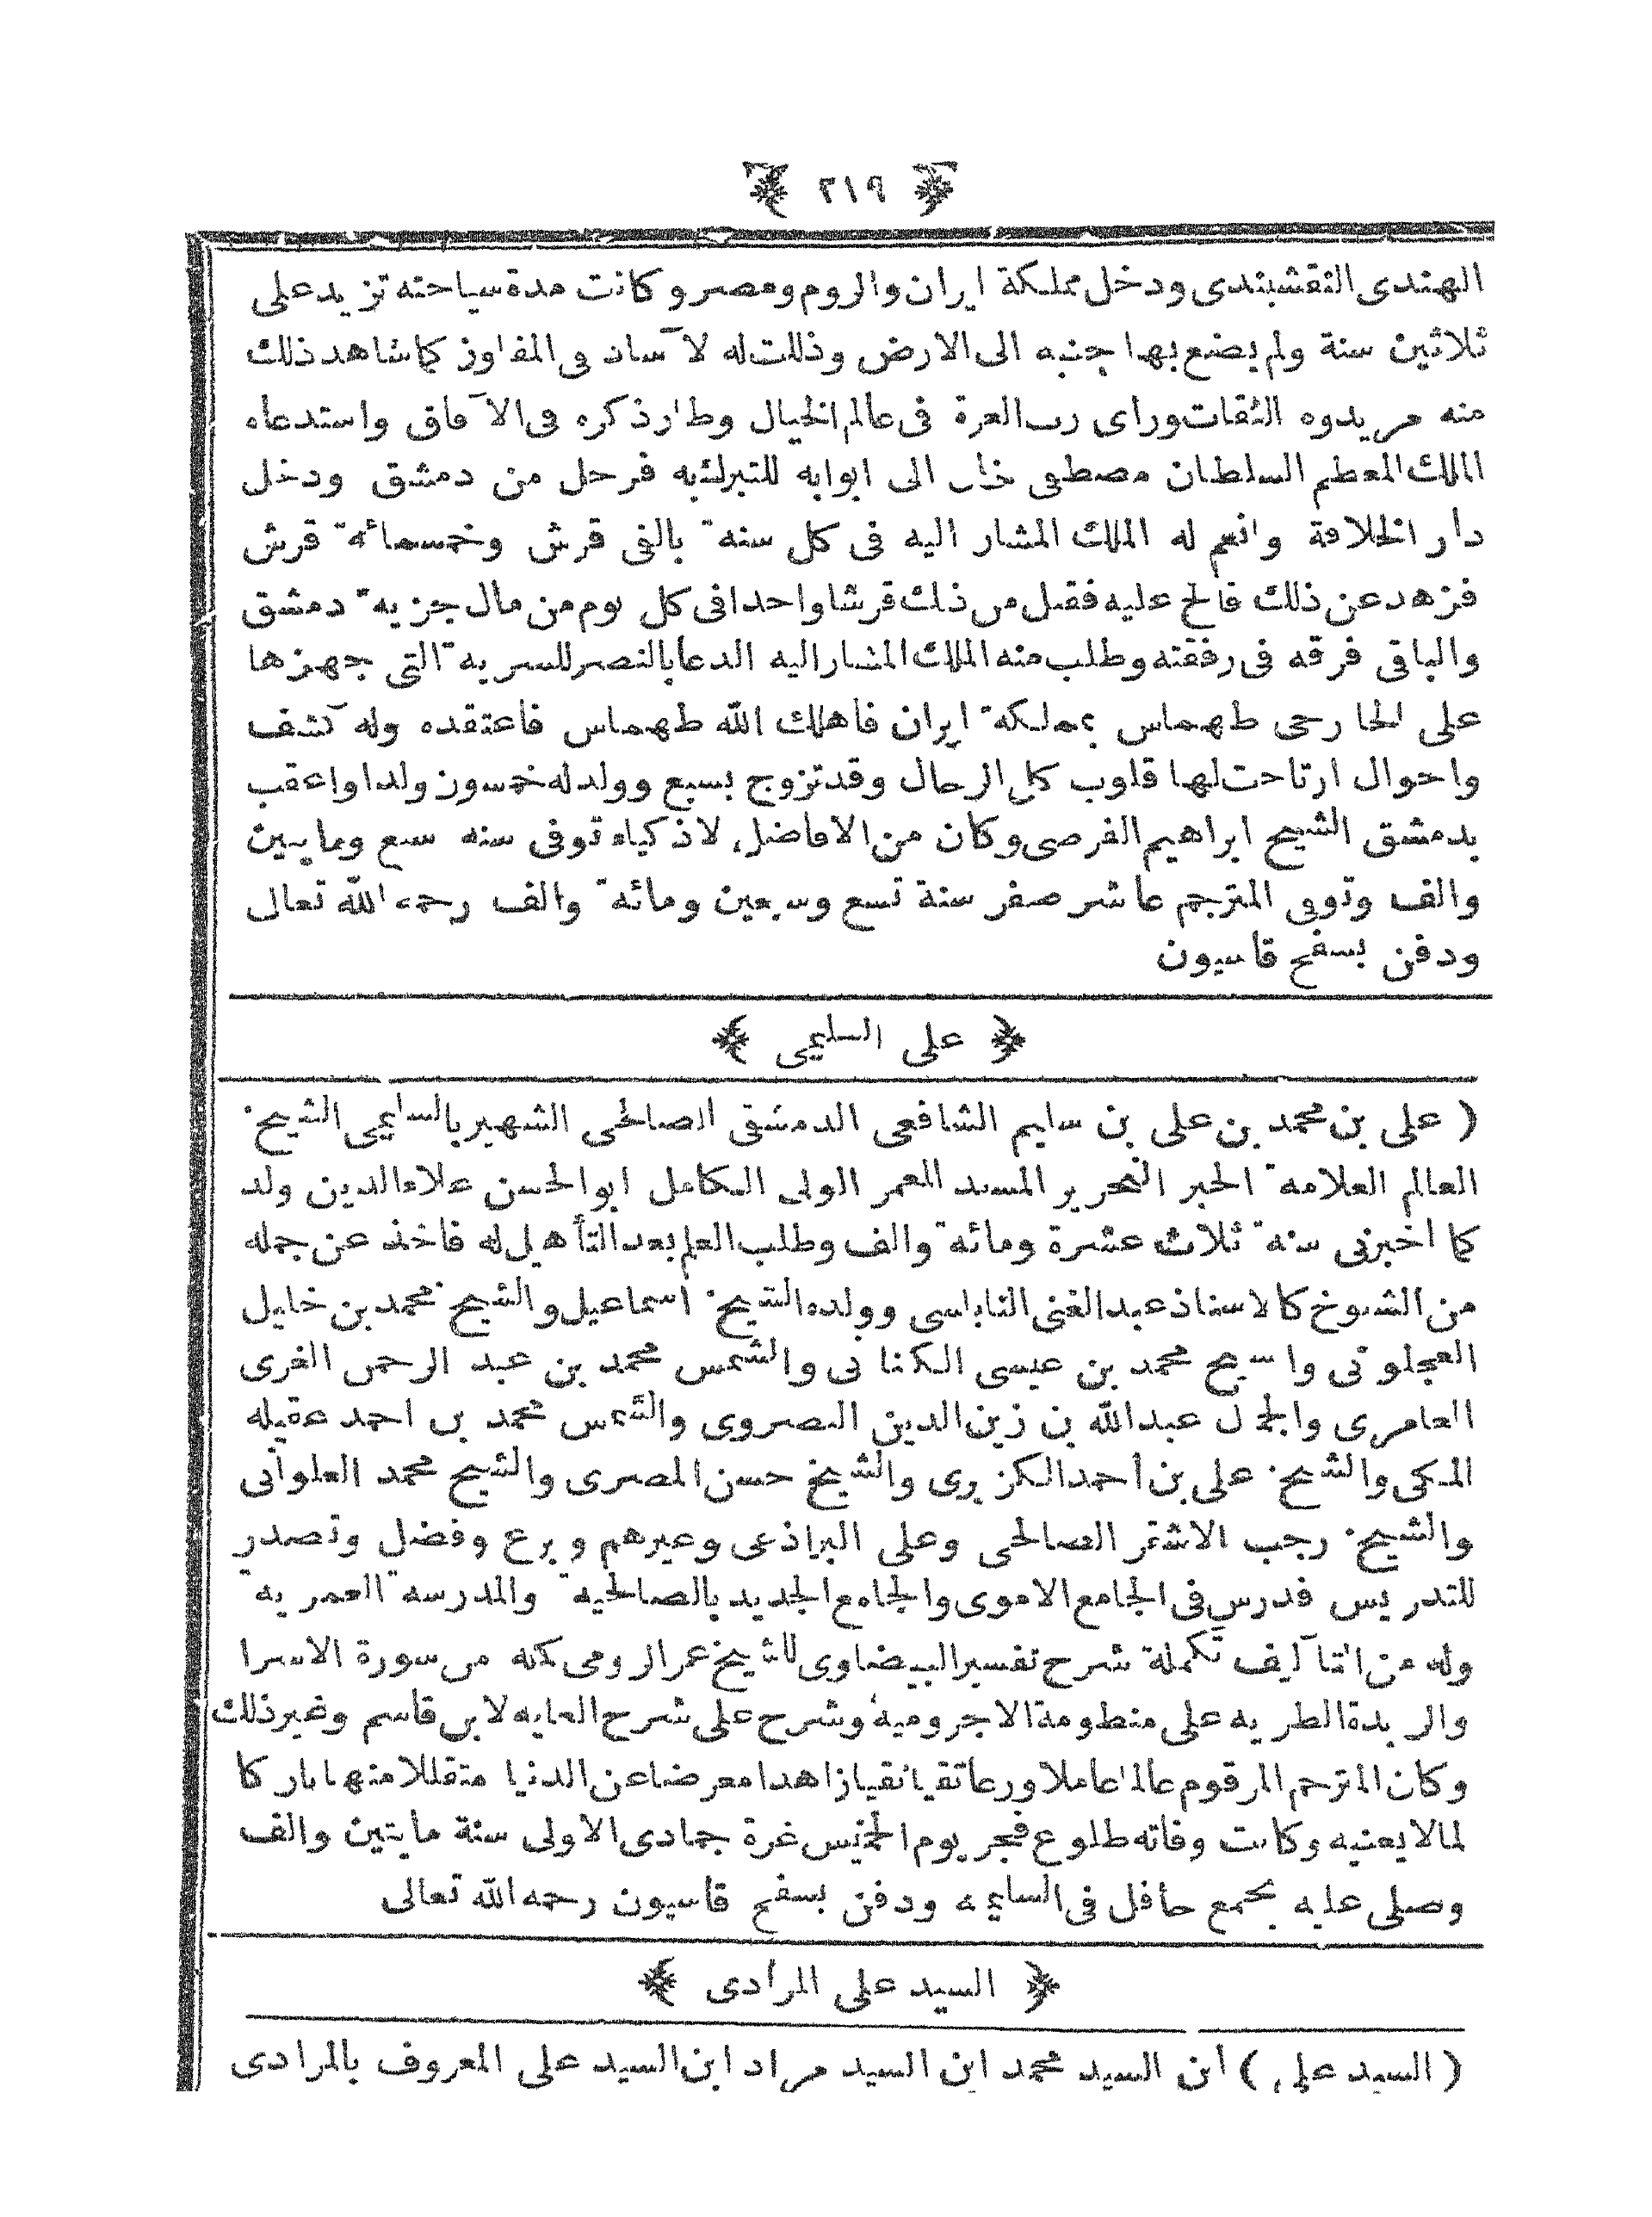 ٢١٩
الهندى النقشبندى ودخل مملكة ايران والروم ومصر وكانت مدة سياحته تزيد على
ثلاثين سنة ولم يضع بها جنبه الى الارض وذللت له لآساد فى المفاوز كما شاهد ذلك
منه مريدوه الثقات وراى رب العزة فى عالم الخيال وطار ذكره فى الآفاق واستدعاه
الملك المعظم السلطان مصطفى خان الى ابوابه للتبرك به فرحل من دمشق ودخل
دار الخلافة وانعم له الملك المشار اليه فى كل سنة بالفى قرش وخمسمائة قرش
فزهد عن ذلك فالح عليه فقبل من ذلك قرشا واحدا فى كل يوم من مال جزية دمشق
والباقى فرقه فى رفقته وطلب منه الملك المشار اليه الدعا بالنصر للسرية التى جهزها
على الخارجى طهماس بمملكة ايران فاهلك الله طهماس فاعتقده وله كشف
واحوال ارتاحت لها قلوب كل الرجال وقد تزوج بسبع وولد له خمسون ولدا واعقب
بدمشق الشيخ ابراهيم الفرضى وكان من الافاضل لاذكياء توفى سنه سبع ومايين
والف وتوفى المترجم عاشر صفر سنة تسع وسبعين ومائة والف رحمه الله تعالى
ودفن بسفح قاسيون
على السليمى
( على بن محمد بن على بن سليم الشافعى الدمشقى الصالحى الشهير بالسليمى الشيخ
العالم العلامة الحبر النحرير المسند المعمر الولى الكامل ابو الحسن علاء الدين ولد
كما اخبرنى سنة ثلاث عشرة ومائة والف وطلب العلم بعد التأهيل له فاخذ عن جمله
من الشيوخ كالاستاذ عبد الغنى النابلسى وولده الشيخ اسماعيل والشيخ محمد بن خليل
العجلونى والشيخ محمد بن عيسى الكنانى والشمس محمد بن عبد الرحمن الغزى
العامرى والجمال عبد الله بن زين الدين البصروى والشمس محمد بن احمد عقيله
المكى والشيخ على بن أحمد الكزبرى والشيخ حسن المصرى والشيخ محمد العلوانى
والشيخ رجب الاشتر الصالحى وعلى البراذعى وغيرهم وبرع وفضل وتصدر
للتدريس فدرس فى الجامع الاموى والجامع الجديد بالصالحية والمدرسة العمرية
وله من التآليف تكملة شرح تفسير البيضاوى للشيخ عمر الرومى كتبه من سورة الاسرا
والزبدة الطرية على منظومة الاجرومية وشرح على شرح الغايه لابن قاسم وغير ذلك
وكان المترجم المرقوم عالما عاملا ورعا تقيا نقيا زاهدا معرضا عن الدنيا متقللا منها تاركا
لما لا يعنيه وكانت وفاته طلوع فجر يوم الخميس غرة جمادى الاولى سنة مايتين والف
وصلى عليه بجمع حافل فى السليميه ودفن بسفح قاسيون رحمه الله تعالى
السيد على المرادى
( السيد على ) ابن السيد محمد ابن السيد مراد ابن السيد على المعروف بالمرادى